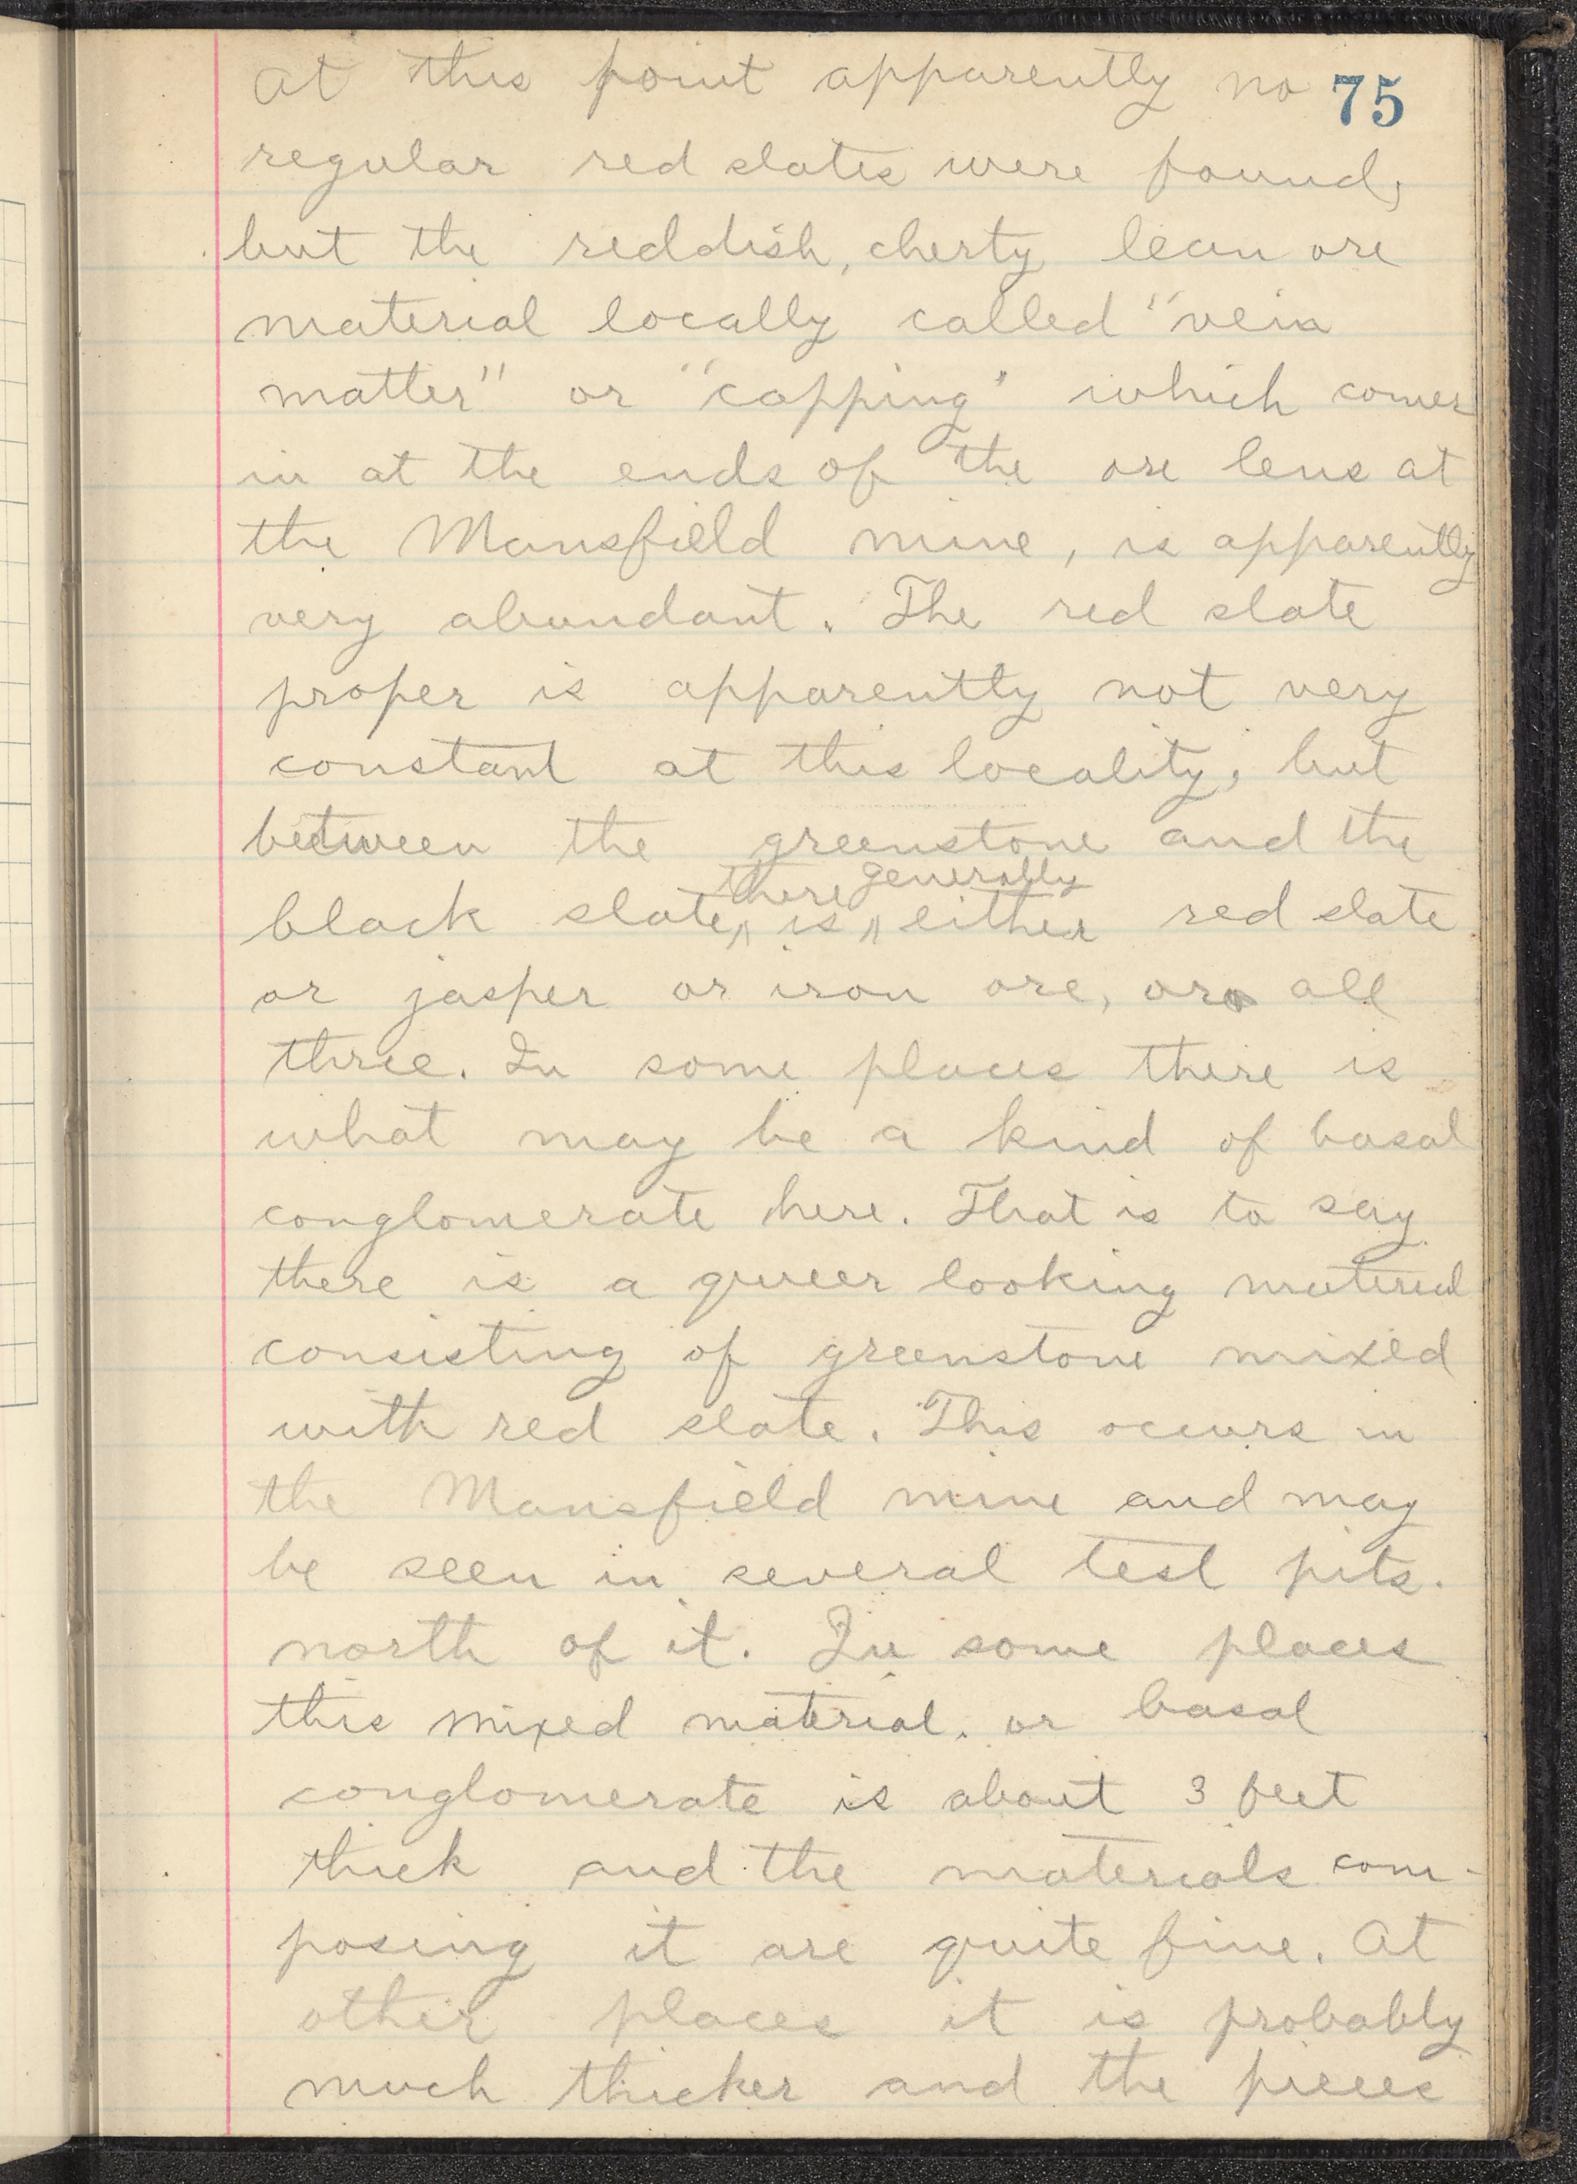 At this point apparently no 75
regular red slates were found,
but the reddish, cherty lean ore
material locally called "vein
matter" or "capping" which comes
in at the ends of the ore lens at
the Mansfield mine, is apparently
very abundant. The red slate
proper is apparently not very
constant at this locality, but
between the greenstone and the
there generally
black slate, is either red slate
or jasper or iron ore, or all
three. In some places there is
what may be a kind of basal
conglomerate here. That is to say
there is a queer looking material
consisting of greenstone mixed
with red slate. This occurs in
the Mansfield mine and may
be seen in several test pits.
north of it. In some places
this mixed material. or basal
conglomerate is about 3 feet
thick and the materials com-
posing it are quite fine. At
other places it is probably
much thicker and the pieces